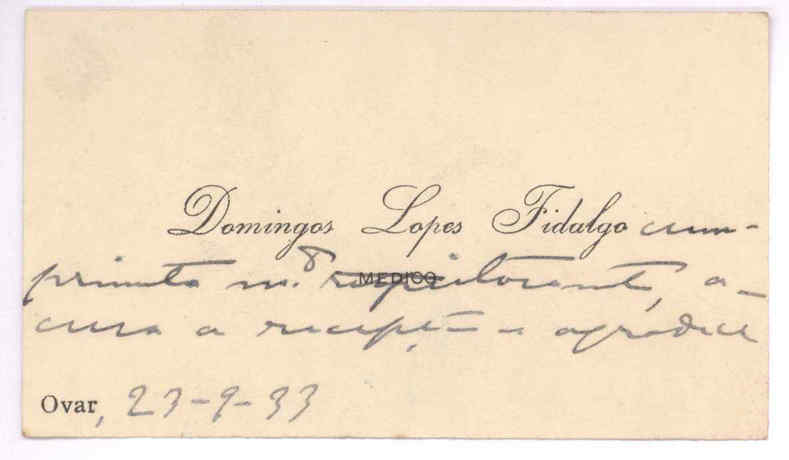 Domingos Lopes Fidalgo cum-
MEDICO
primenta m.to respeitosamente, a-
cusa a recepção e agradece
Ovar, 23-9-33